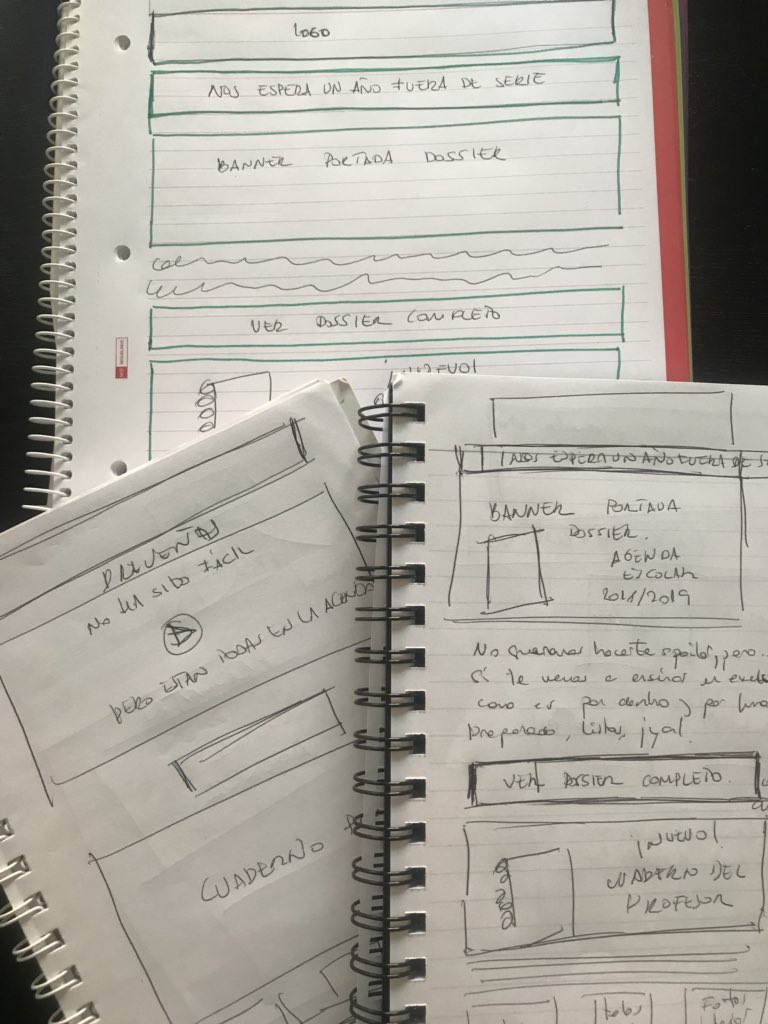 LOGO
NOS ESPERA UN AÑO FUERA DE SERIE
BANNER PORTADA DOSSIER
VER DOSSIER COMPLETO
PREVENTA
NO HA SIDO FÁCIL
PERO ESTAN TODAS EN LA AGENDA
CUADERNO
¡NOS ESPERA UN AÑO FUERA DE
BANNER PORTADA
DOSSIER.
AGENDA
ESCOLAR
2018/2019
No queremos hacerte spoiler, pero..
Sí te vamos a enseñar en
como es por dentro y por
Preparado, listos, ¡ya!.
VER DOSIER COMPLETO.
¡NUEVO!
CUADERNO DEL
PROFESOR